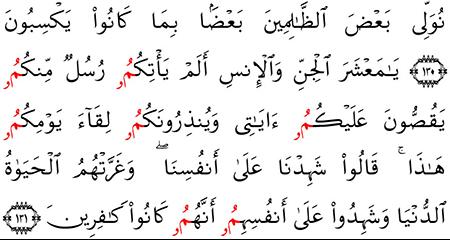 نُوَلِّى بَعْضَ ٱلظَّٰلِمِينَ بَعْضًۢا بِمَا كَانُوا۟ يَكْسِبُونَ
﴿١٣٠﴾ يَٰمَعْشَرَ ٱلْجِنِّ وَٱلْإِنسِ أَلَمْ يَأْتِكُمُۥ رُسُلٌ مِّنكُمُۥ
يَقُصُّونَ عَلَيْكُمُۥ ءَايَٰتِى وَيُنذِرُونَكُمُۥ لِقَآءَ يَوْمِكُمُۥ
هَٰذَا ۚ قَالُوا۟ شَهِدْنَا عَلَىٰٓ أَنفُسِنَا ۖ وَغَرَّتْهُمُ ٱلْحَيَوٰةُ
ٱلدُّنْيَا وَشَهِدُوا۟ عَلَىٰٓ أَنفُسِهِمُۥٓ أَنَّهُمُۥ كَانُوا۟ كَٰفِرِينَ ﴿١٣١﴾